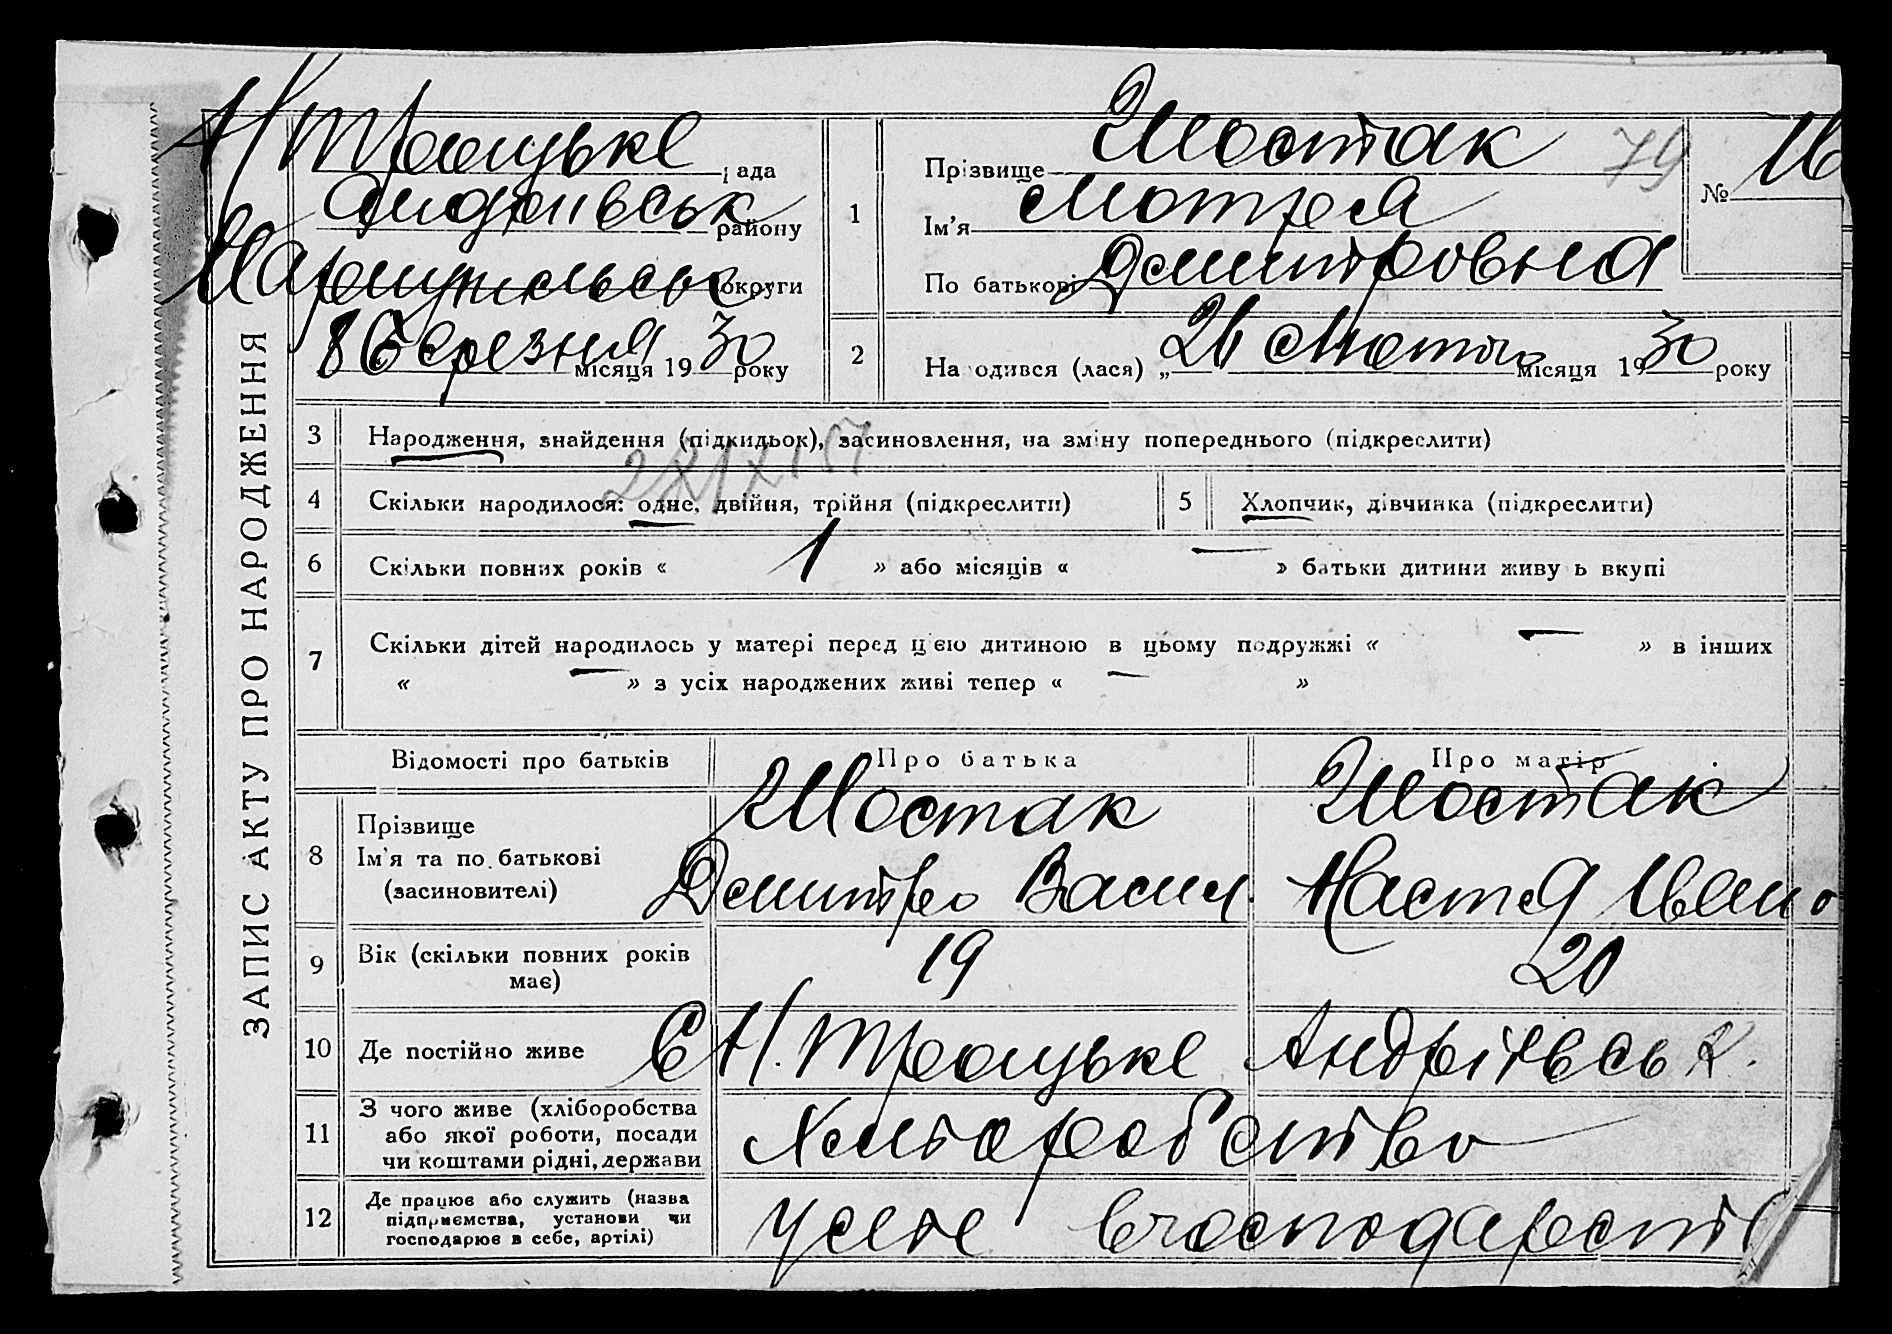 ЗАПИС АКТУ ПРО НАРОДЖЕННЯ
Н Троицьке рада
Андріівськ району
Маріупільськ округи
8 березня місяця 1930 року
1
Прізвище Шостак
79
№ 16
Ім'я Мотря
По батькові Дмитровна
2
Народився (лася) „ 26 Лютого місяця 1930 року
3 Народження, знайдення (підкидьок), засиновлення, на зміну попереднього (підкреслити)
4 Скільки народилося: одне, двійня, трійня (підкреслити)
5 Хлопчик, дівчинка (підкреслити)
6 Скільки повних років « 1 » або місяців « — » батьки дитини живуть вкупі
7 Скільки дітей народилось у матері перед цією дитиною в цьому подружжі « — » в інших
« — » з усіх народжених живі тепер « — »
Відомості про батьків Про батька Про матір
8 Прізвище Шостак Шостак
Ім'я та по батькові Дмитро Васил. Настя Івано
(засиновителі)
9 Вік (скільки повних років має) 19 20
10 Де постійно живе Є Н. Троицьке Андріївськ.
11 З чого живе (хліборобства
або якої роботи, посади
чи коштами рідні, держави
Хліборобство
12 Де працює або служить (назва
підприємства, установи чи
господарює в себе, артілі)
у себе в господарстві